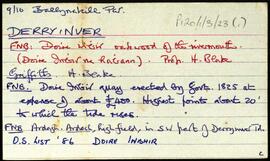 9/10 Ballynakill Par.
P120/1/3/23 (1)
DERRYINVER
FNB: Doire Inbhir oakwood of the rivermouth.
(Doire Inbhir na                ) Prop. H. Blake
Griffith H. Blake
FNB: Doire Inbhir quay erected by Govt. 1825 at
expense of about £400. Highest points about 20'
to which the tide rises.
FNB Ardagh. Ardach, high field, in S.W. part of Derryinver Td.
O.S. LIST '86 DOIRE INBHIR
c